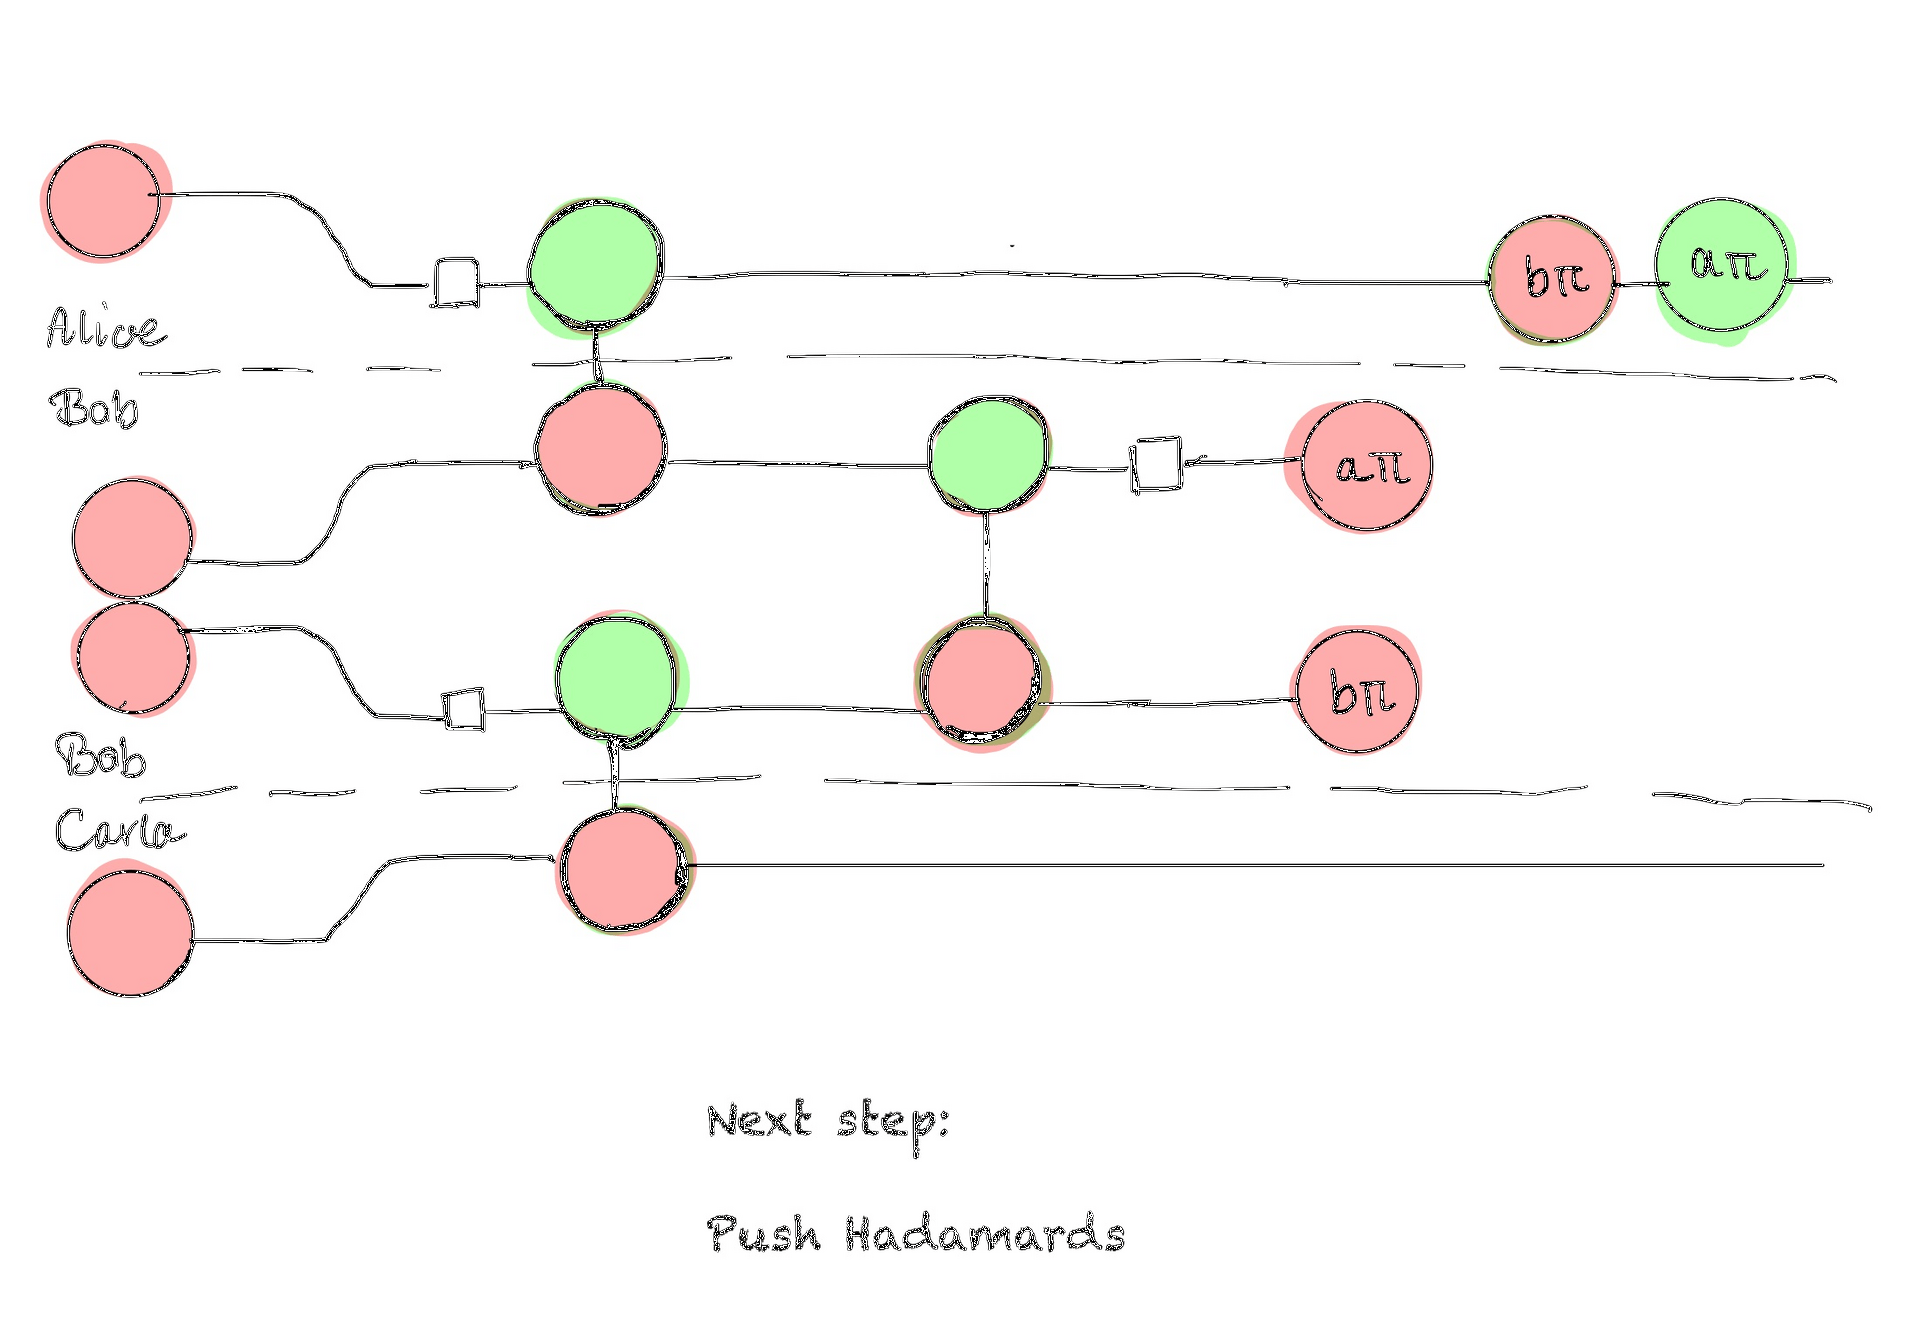 bπ aπ
Alice
Bob
aπ
bπ
Bob
Carla
Next step:
Push Hadamards